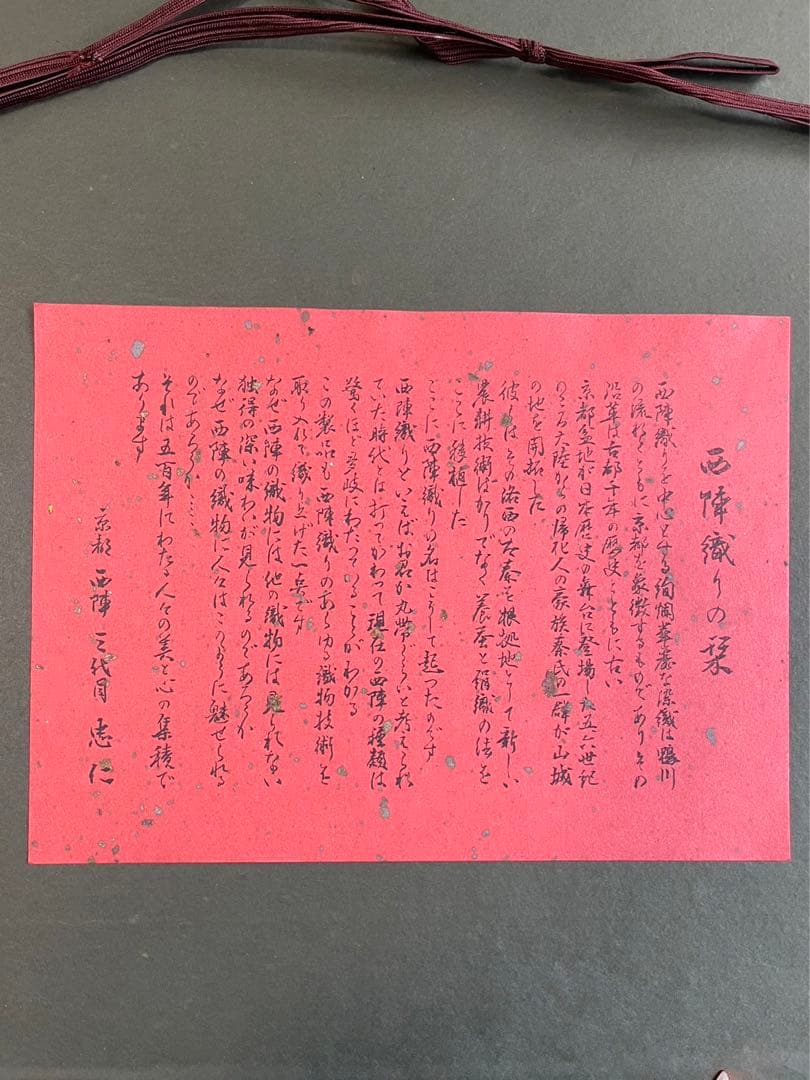 西陣織りの栞
西陣織りを中心とする絢爛華麗な染織は鴨川
の流れとともに京都を象徴するものでありその
沿革は古都千年の歴史とともに古い
京都盆地が日本歴史の舞台に登場した五六世紀
のころ大陸からの帰化人の豪族秦氏の一群が山城
の地を開拓した
彼らはその洛西の太秦を根拠地として新しい
農耕技術ばかりでなく養蚕と絹織の法を
ここに移植した
ここに西陣織りの名はこうして起つたのです
西陣織りといえばお召か丸帯ぐらいと考えられ
ていた時代とは打ってかわって現在の西陣の種類は
驚くほど多岐にわたっていることがわかる
この製品も西陣織りのあらゆる織物技術を
取り入れて織り上げた一兵です
なぜ西陣の織物には他の織物には見られない
独得の深い味わいが見られるのであろうか
なぜ西陣の織物に人々はこのように魅せられる
のであろうか……
それは五百年にわたる人々の美と心の集積で
あります
京都 西陣 三代目 忠仁